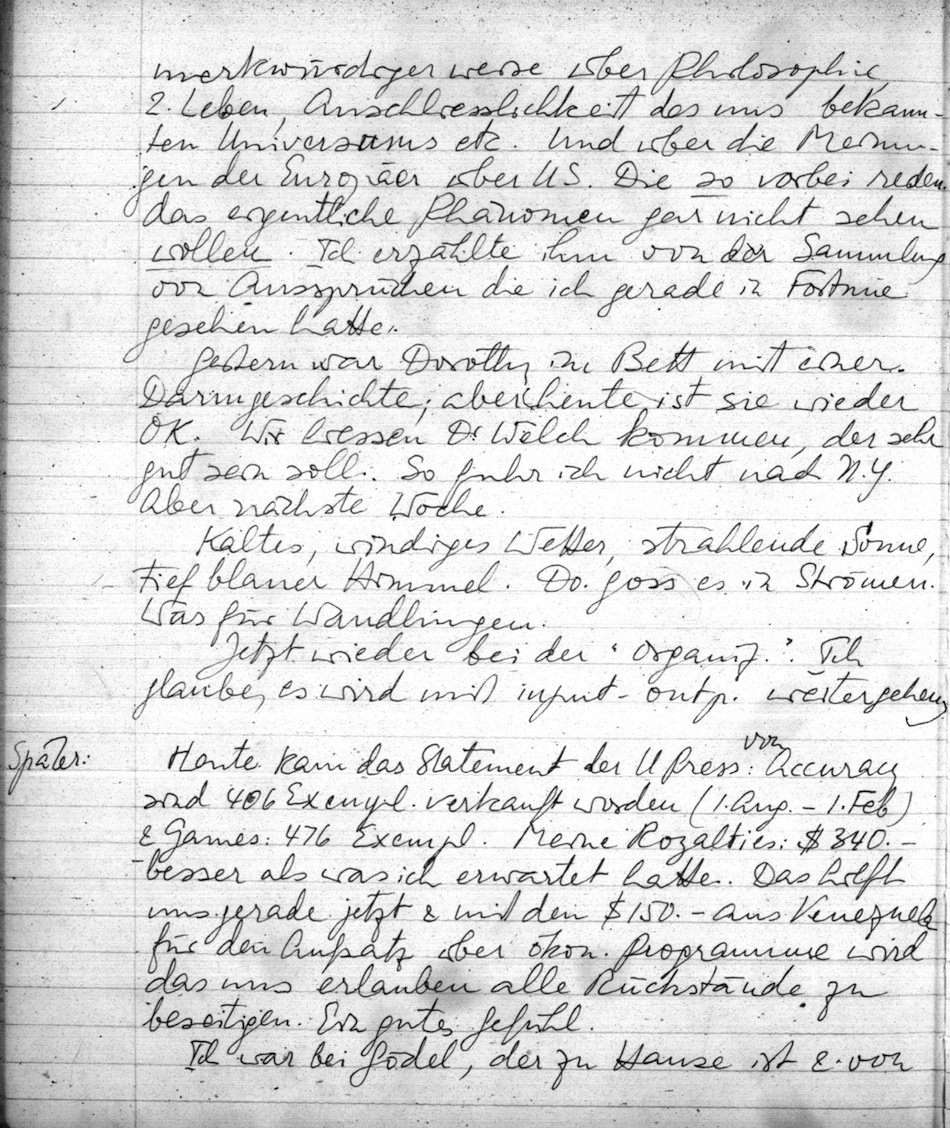 merkwürdigerweise über Philosophie,
2. Leben, Anschliesslichkeit des uns bekann-
ten Universums etc. Und über die Meinun-
gen der Europäer über US. Die so vorbei reden
das eigentliche Phänomen gar nicht sehen
wollen. Ich erzählte ihm von der Sammlung
von Aussprüchen die ich gerade in Fortune
gesehen hatte.
Gestern war Dorothy im Bett mit einer
Darmgeschichte; aber heute ist sie wieder
OK. Wir liessen Dr Welch kommen, der sehr
gut sein soll. So fuhr ich nicht nach N.Y.
Aber nächste Woche.
Kaltes, windiges Wetter, strahlende Sonne,
tiefblauer Himmel. Do. goss es in Strömen.
Was für Wandlungen.
Jetzt wieder bei der "Organiz.". Ich
glaube, es wird mit input-outp. weitergehen
Später: Heute kam das Statement der U Press: von Accuracy
sind 406 Exempl. verkauft worden (1. Aug. – 1. Feb)
& Games: 476 Exempl. Meine Royalties: $ 340.–
besser als was ich erwartet hatte. Das hilft
uns gerade jetzt & mit den $150.– aus Venezuela
für den Aufsatz über ökon. Programme wird
das uns erlauben alle Rückstände zu
beseitigen. Ein gutes Gefühl.
Ich war bei Gödel, der zu Hause ist & von